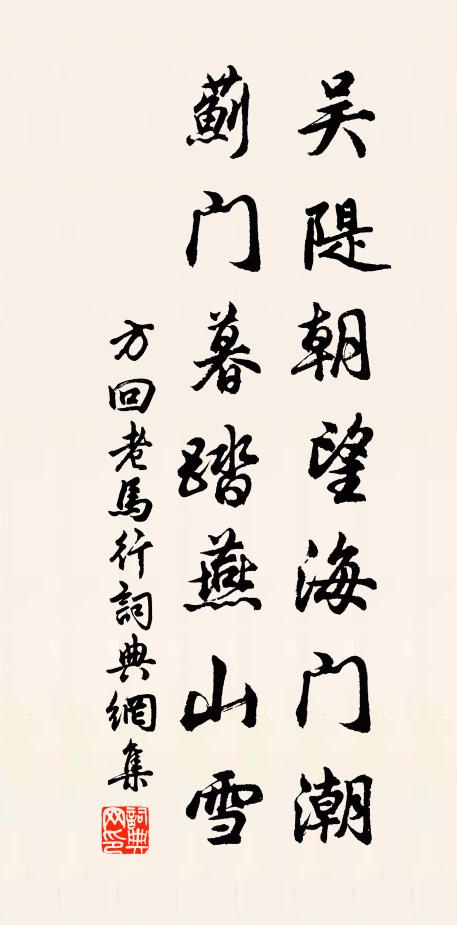 吴隄朝望海门潮
蓟门暮踏燕山雪
方回老馬行詞典網集
詞典网印